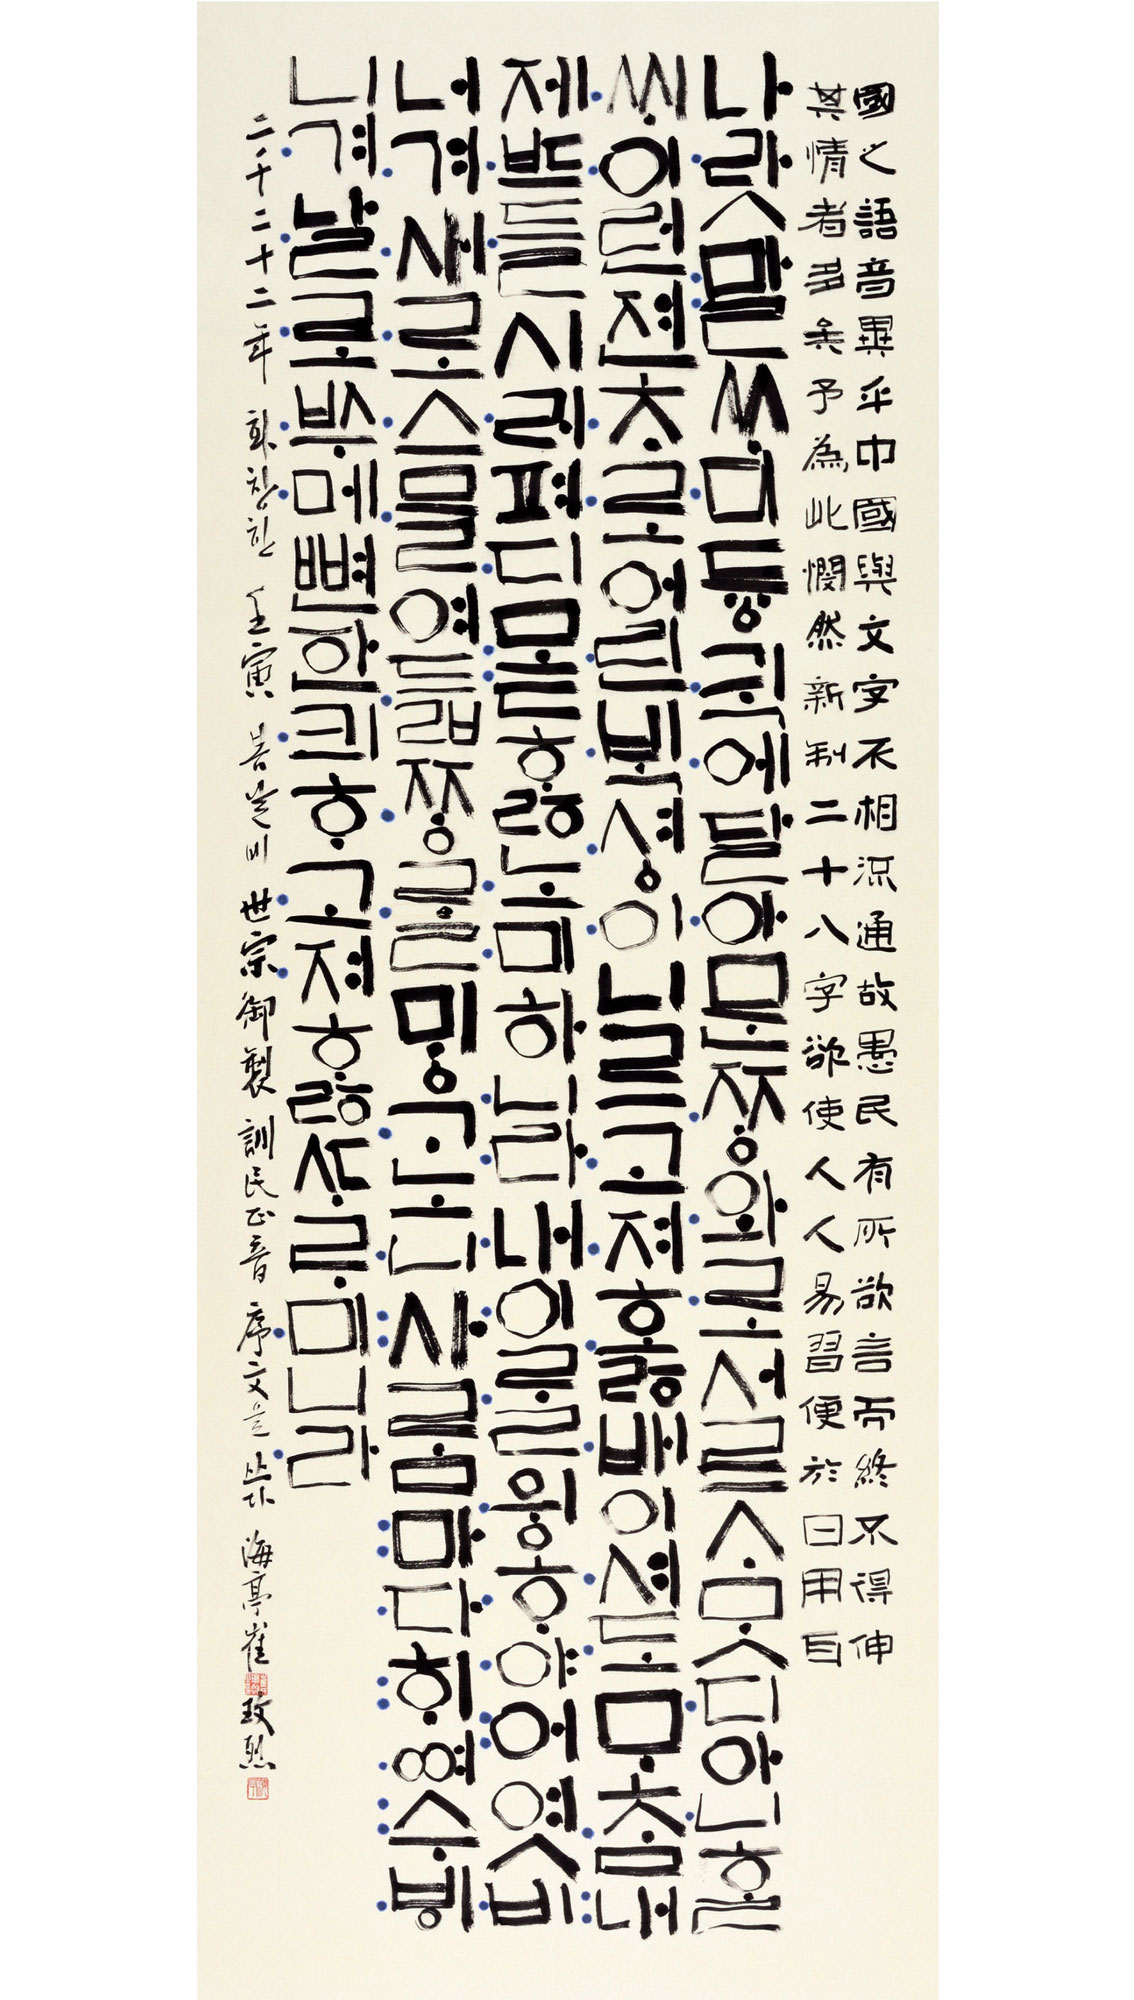 國之語音異乎中國與文字不相流通故愚民有所欲言而終不得伸
其情者多矣予為此憫然新制二十八字欲使人人易習便於日用耳
나랏말ᄊᆞ미듕귁에달아문ᄍᆞᆼ와로서르ᄉᆞᄆᆞᆺ디아니ᄒᆞᆯ
ᄊᆡ이런젼ᄎᆞ로어린ᄇᆡᆨ셩이니르고져ᄒᆞᇙ배이셔도ᄆᆞᄎᆞᆷ내
제ᄠᅳ들시러펴디몯ᄒᆞᇙ노미하니라내이ᄅᆞᆯ윙ᄒᆞ야어엿비
너겨새로스믈여듧ᄍᆞᆼᄅᆞᆯᄆᆡᇰᄀᆞ노니사ᄅᆞᆷ마다ᄒᆡᅇᅧ수ᄫᅵ
니겨날로ᄡᅮ메뼌한킈ᄒᆞ고져ᄒᆞᇙᄯᆞᄅᆞ미니라
二千二十二年 화창한 壬寅 봄날에 世宗御製 訓民正音 序文을 쓰다 海亭 崔玟烈